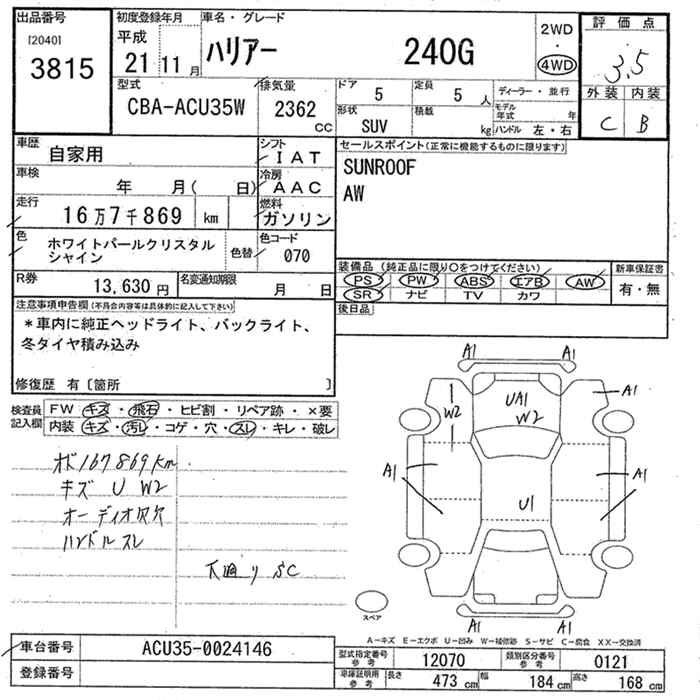 出品番号
[2040]
3815
初度登録年月
平成
21 11 月
車名・グレード
ハリアー 240G
2WD
4WD
評価点
3.5
外装 内装
C B
型式
CBA-ACU35W
排気量
2362
CC
ドア
5
定員
5 人
形状
SUV
積載
kg
ディーラー・並行
モデル年式 年
ハンドル 左・右
車歴
自家用
シフト
IAT
車検
年 月( 日)
冷房
AAC
走行
16万7千869 km
燃料
ガソリン
色
ホワイトパールクリスタル
シャイン
色替
色コード
070
R券
13,630 円
名変通知期限
月 日
セールスポイント(正常に機能するものに限ります)
SUNROOF
AW
装備品 (純正品に限り○をつけてください)
PS PW ABS エアB AW
SR ナビ TV カワ
新車保証書
有・無
後日品
注意事項申告欄(不具合内容等は具体的に記入して下さい)
*車内に純正ヘッドライト、バックライト、
冬タイヤ積み込み
修復歴 有〔箇所 〕
検査員
記入欄
FW キズ・飛石・ヒビ割・リペア跡・×要
内装 キズ・汚レ・コゲ・穴・スレ・キレ・破レ
オド167869km
キズ U W2
オーディオ欠欠
ハンドルスレ
下廻り SC
A1 A1
W2 UA1 A1
W2
A1 A1
U1
A1 A1
スペア
A-キズ E-エクボ U-凹み W-補修跡 S-サビ C-腐食 XX-交換済
車台番号
ACU35-0024146
登録番号
型式指定番号
参考
12070
類別区分番号
参考
0121
車庫証明用
参考
長さ 473 cm 幅 184 cm 高さ 168 cm